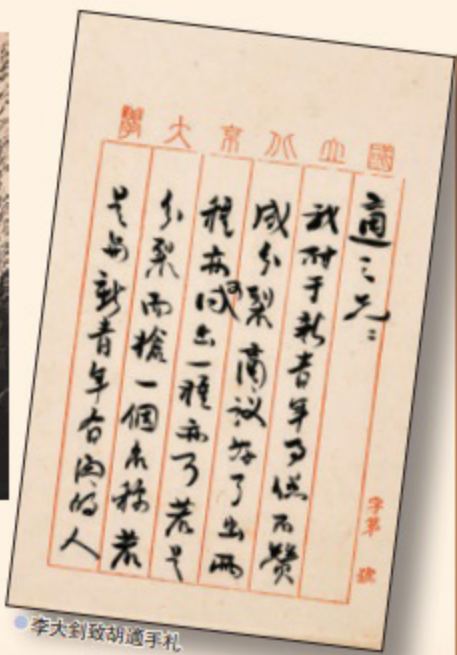 國立北京大學
適之兄：
我對于新青年事總不贊
成分裂商議好了出兩
種亦可同出一種亦可若是
分裂而搶一個名稱若
是與新青年有關的人
字第 號
李大釗致胡適手札